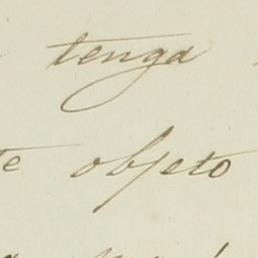 tenga
te objeto